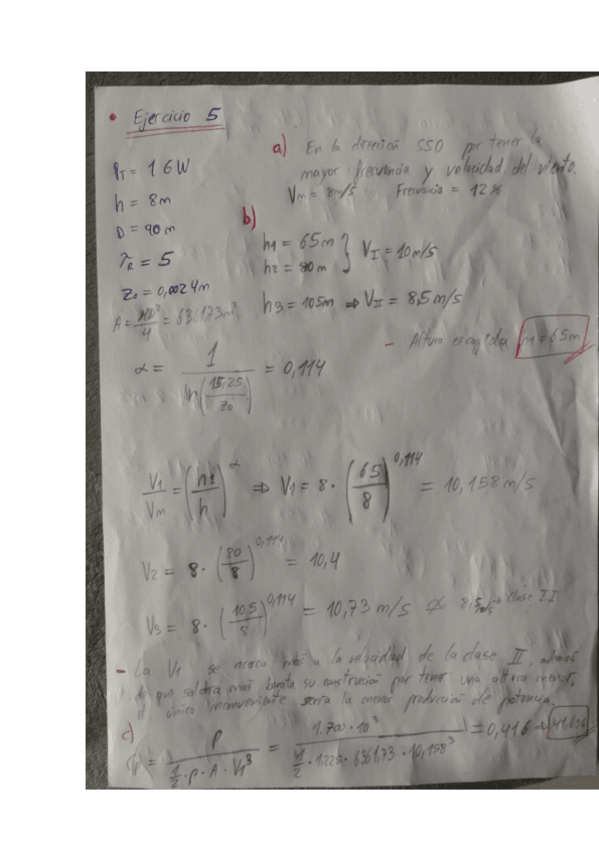 • Ejercicio 5
a) En la dirección SSO por tener la
mayor frecuencia y velocidad del viento.
Vm = 8m/s Frecuencia = 12%
PT = 1 GW
h = 8m
D = 90 m
λR = 5
Z0 = 0,0024m
A = πD²/4 = 6361,73m²
b)
h1 = 65m
h2 = 80m } VI = 10m/s
h3 = 105m ⇒ VII = 8,5 m/s
- Altura escogida h1 = 65m
α = 1 / ln(15,25/Z0) = 0,114
V1/Vm = (h1/h)^α ⇒ V1 = 8 · (65/8)^0,114 = 10,158 m/s
V2 = 8 · (80/8)^0,114 = 10,4
V3 = 8 · (10,5/8)^0,114 = 10,73 m/s 8,5 m/s clase II
- La V1 se acerca más a la velocidad de la clase II, además
de que saldrá más barata su construcción por tener una altura menor,
el único inconveniente sería la menor producción de potencia.
c)
Cp = P / (1/2 · ρ · A · V1³) = 1.700 · 10³ / (1/2 · 1.225 · 6361,73 · 10,158³) = 0,416